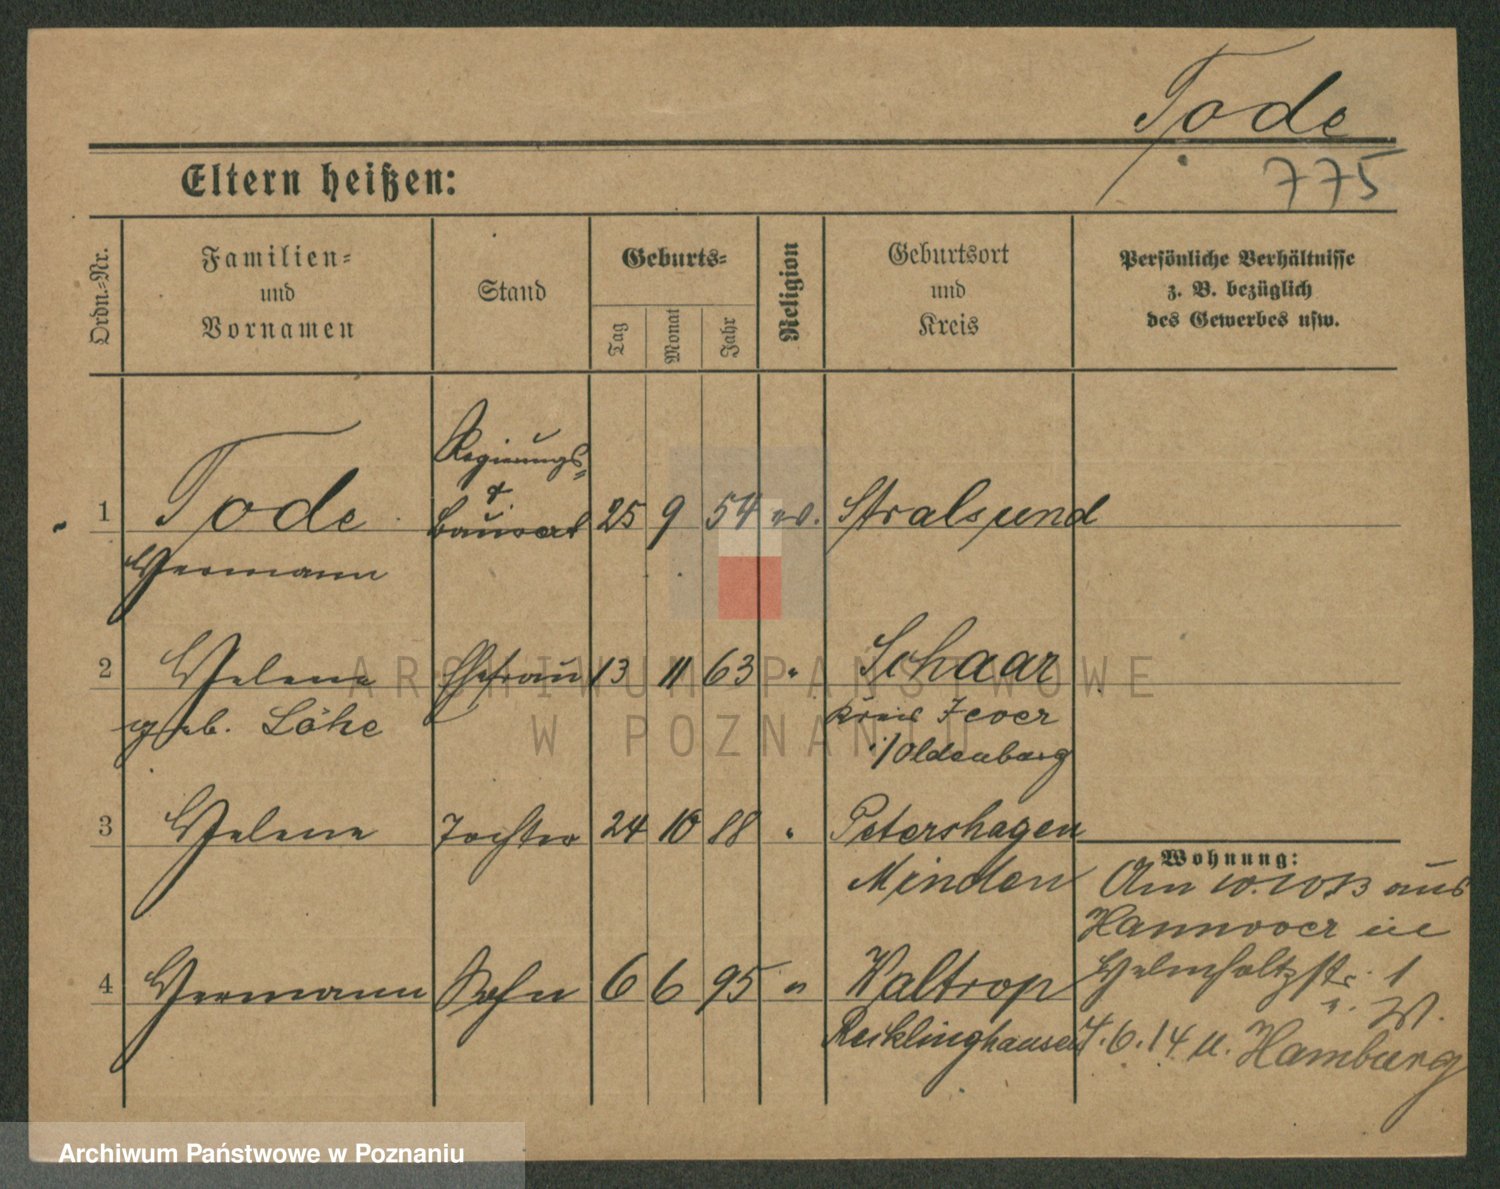 Tode
775
Eltern heißen:
Ordn.-Nr.
Familien-
und
Vornamen
Stand
Geburts-
Tag
Monat
Jahr
Religion
Geburtsort
und
Kreis
Persönliche Verhältnisse
z. B. bezüglich
des Gewerbes usw.
Regierungs-
1 Tode Baurat 25 9 54 ev. Stralsund
Hermann
2 Helene Ehefrau 13 11 63 " Schaar
geb. Löhe Kreis Jever
i/Oldenburg
3 Helene Tochter 24 10 88 " Petershagen
Minden
Wohnung:
Am 10.10 13 aus
Hannover in
4 Hermann Sohn 6 6 95 " Waltrop
Recklinghausen
Helmholtzstr. 1
W.
4.6.14 n. Hamburg
ARCHIWUM PAŃSTWOWE
W POZNANIU
Archiwum Państwowe w Poznaniu